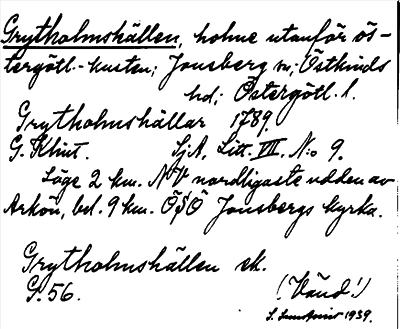 Grytholmshällen, holme utanför ös-
tergötl.-kusten; Jonsberg sn; Östkinds
hd; Östergötl. l.
Grytholmshällar 1789.
G. Klint. SjA, Litt. VII, N:o 9.
Läge 2 km. NV nordligaste udden av
Arkön, bel. 9 km. ÖSÖ Jonsbergs kyrka.
Grytholmshällen ek.
G. 56. (Vänd!)
1939.